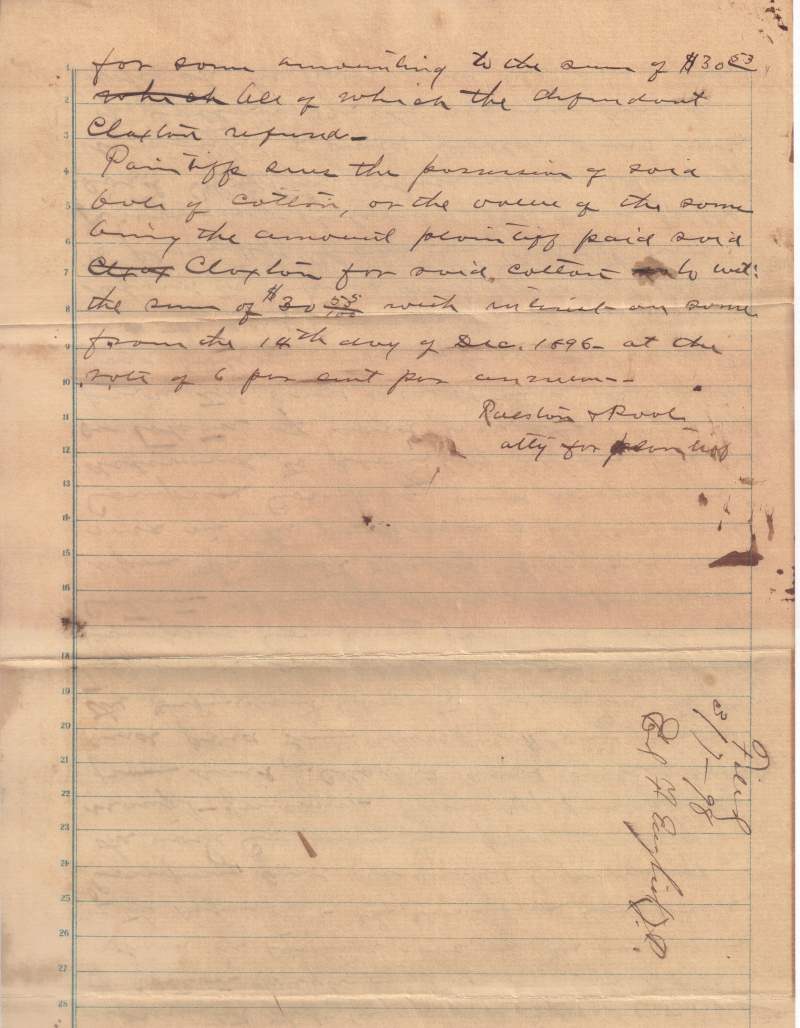 for same amounting to the sum of $30 53
which All of which the defendant
Claxton refused—
Paintiff sues the possession of said
bale of cotton, or the value of the same
being the amount plaintiff paid said
Claxton for said cotton to wit:
the sum of $30 55/100 with interest on same
from the 14th day of Dec. 1896— at the
rate of 6 per cent per annum—
Ralston &
atty for plaintiff
Filed
3/7—98
H English J.P.
1
2
3
4
5
6
7
8
9
10
11
12
13
14
15
16
17
18
19
20
21
22
23
24
25
26
27
28